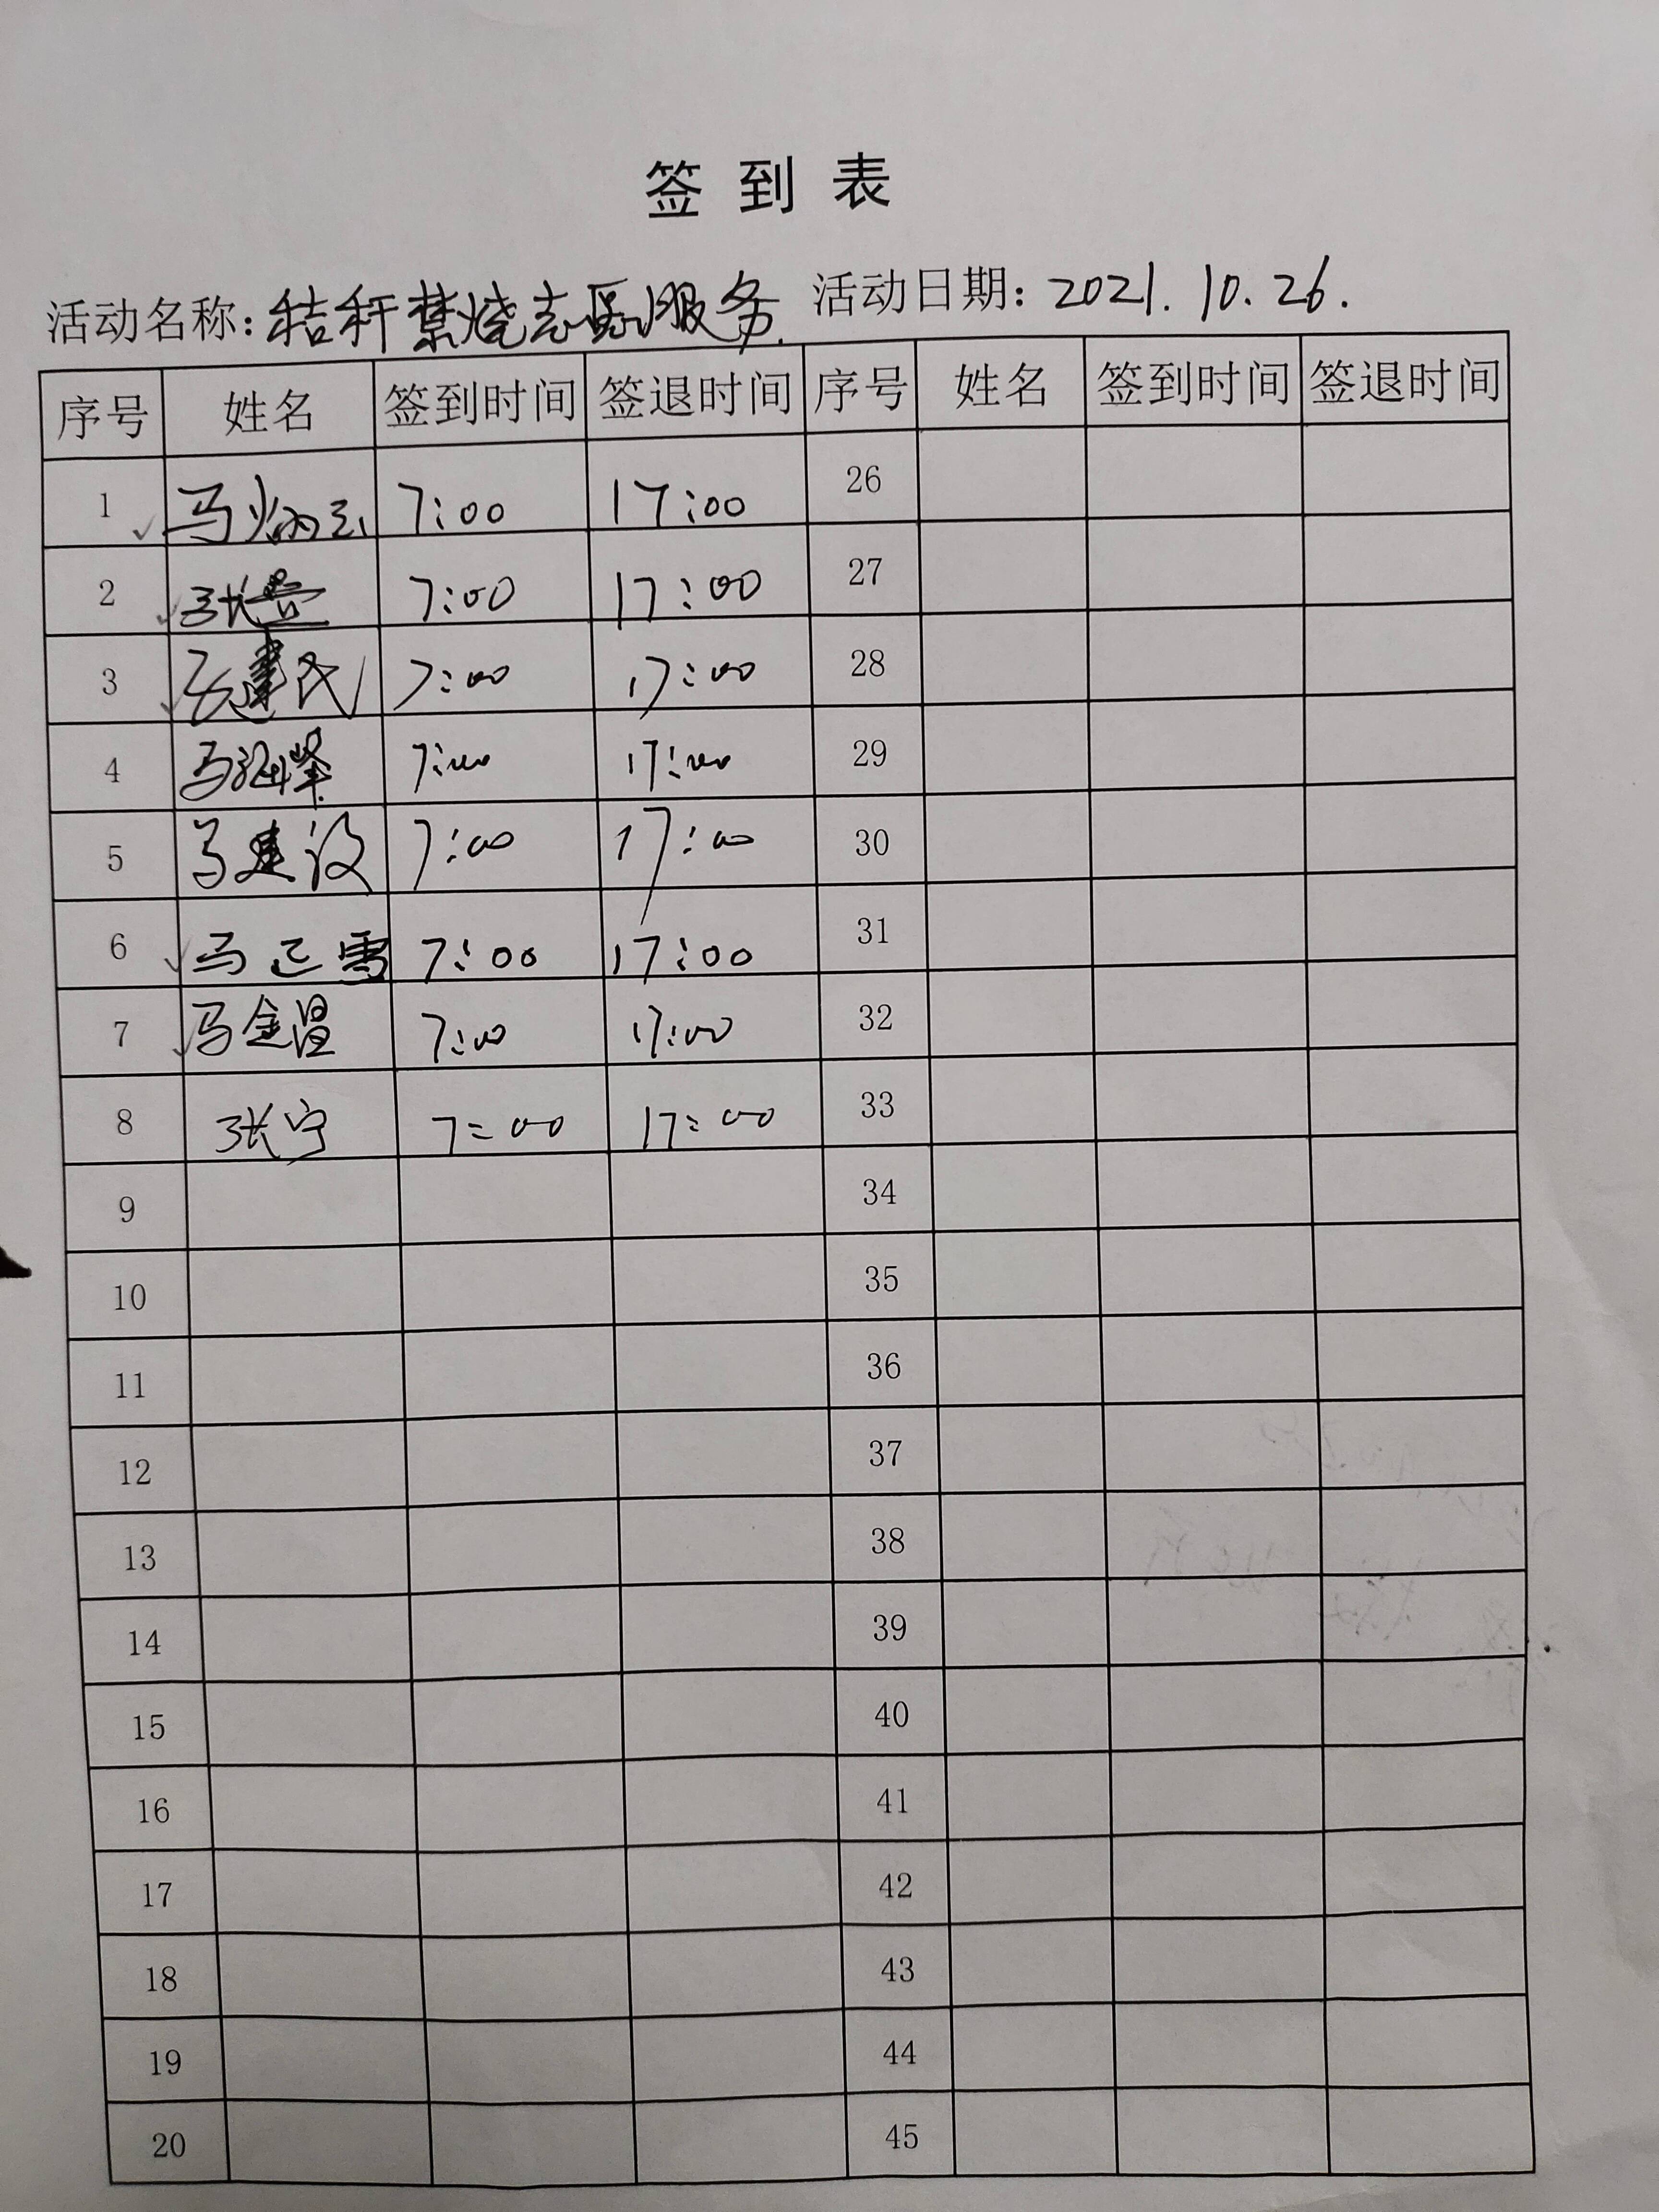 签到表
活动名称:秸秆禁烧志愿服务. 活动日期: 2021.10.26.
序号 姓名 签到时间 签退时间 序号 姓名 签到时间 签退时间
1 马炳 7:00 17:00 26
2 张 7:00 17:00 27
3 建民 7:00 17:00 28
4 马 峰 7:00 17:00 29
5 马建设 7:00 17:00 30
6 马正雷 7:00 17:00 31
7 马金 7:00 17:00 32
8 张宁 7:00 17:00 33
9 34
10 35
11 36
12 37
13 38
14 39
15 40
16 41
17 42
18 43
19 44
20 45